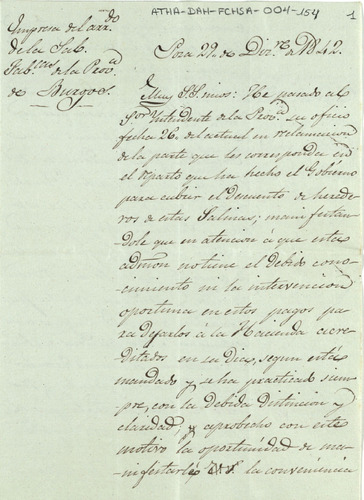 ATHA-DAH-FCHSA-004-154
1
Empresa del arr.do
de la Sal.
Fab.cas de la Prov.a
de Burgos.
Poza 29. de Dic.re de 1842.
Muy SS. mios: He pasado al
S.or Yntendente de la Prov.a su oficio
fecha 26. del actual en reclamacion
de la parte que les corresponda en
el reparto que ha hecho el Gobierno
para cubrir el Descuento de herede
ros de estas Salinas; manifestan
dole que en atencion á que esta
admon no tiene el debido cono-
cimiento ni la intervencion
oportuna en estos pagos pa
ra dejarlos á la Hacienda acre
ditados en su dia, segun está
mandado y se ha practicado siem
pre, con la debida distincion y
claridad, y aprobecho con este
motivo la oportunidad de ma-
nifestarle á la conveniencia